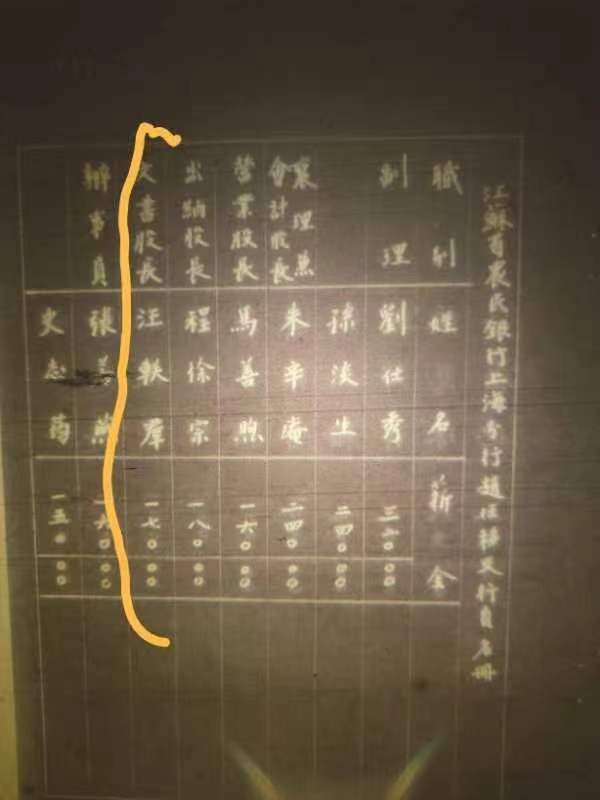 江蘇省農民銀行上海分行趙任移交行員名冊
職別 姓名 薪金
副理 劉仕秀 三二〇 〇〇
孫浚生 二四〇 〇〇
襄理兼會計股長 朱辛庵 二四〇 〇〇
營業股長 馬善煦 一六〇 〇〇
出納股長 程徐宗 一八〇 〇〇
文書股長 汪軼群 一七〇 〇〇
辦事員 張 燕 一六〇 〇〇
史 一五〇 〇〇